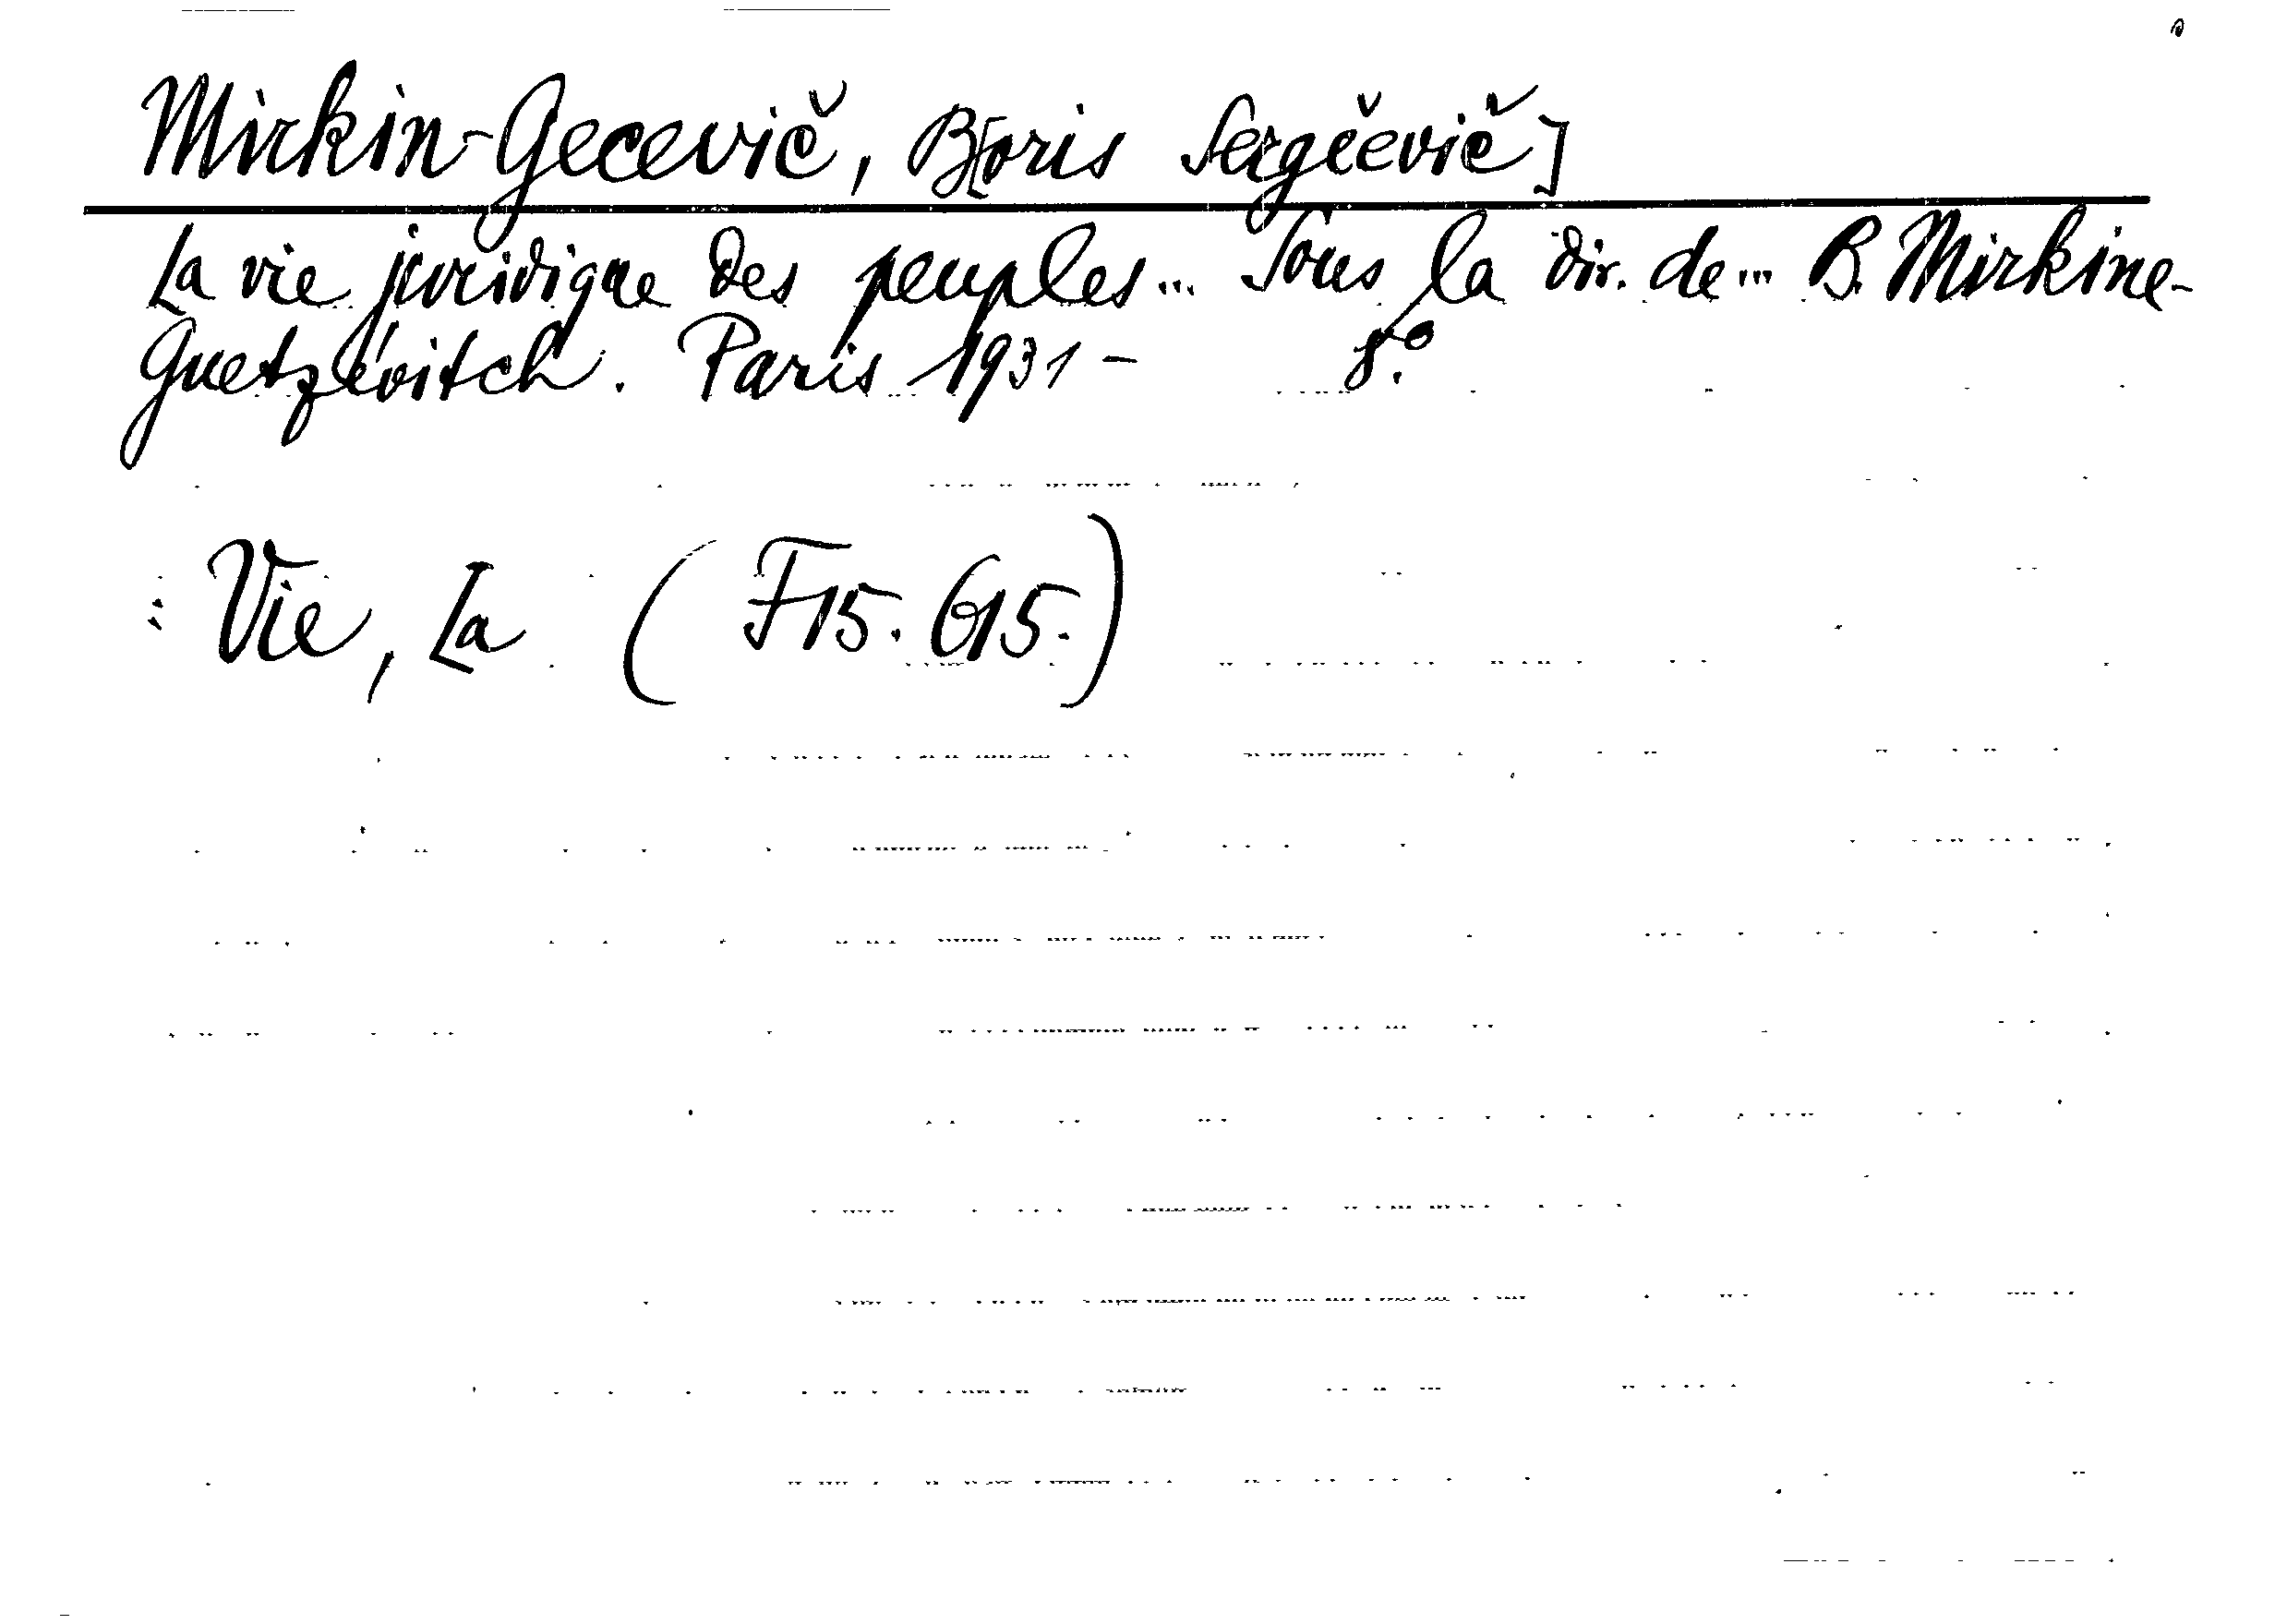 Mirkin-Gecevič, B[oris Sergěevič]
La vie juridique des peuples... Sous la dir. de... B. Mirkine-
Guetzévitch. Paris 1931- 8.º
Vie, La (F15. G15.)